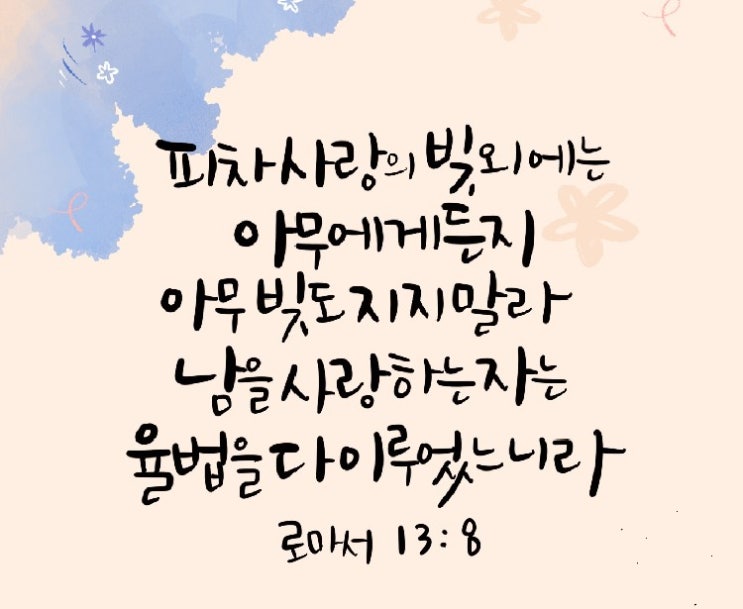 피차 사랑의 빚 외에는
아무에게든지
아무 빚도 지지 말라
남을 사랑하는 자는
율법을 다 이루었느니라
로마서 13:8